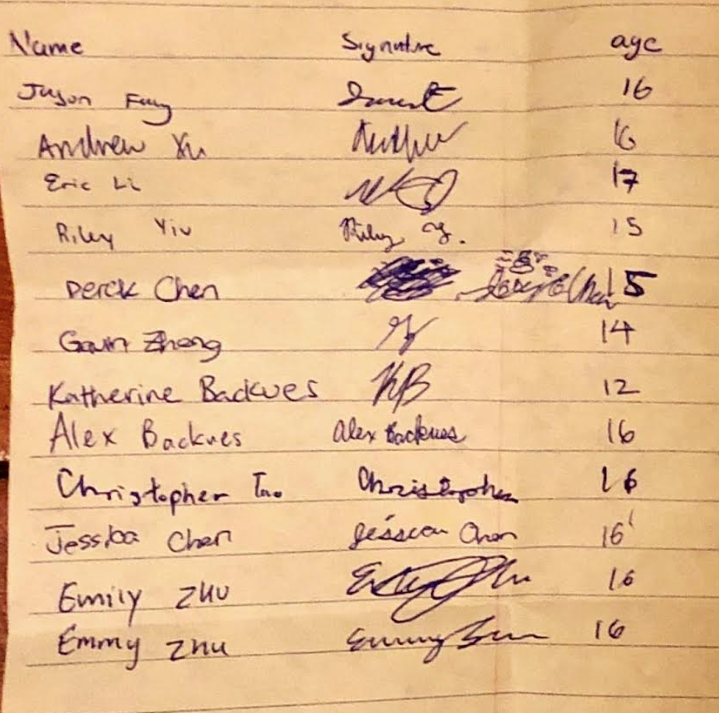 Name Signature age
Jason Fang 16
Andrew Xu 16
Eric Li 17
Riley Yiu Riley Y. 15
Derek Chen Chen 15
Gavin Zheng 14
Katherine Backues KB 12
Alex Backues Alex Backues 16
Christopher Tao Christopher 16
Jessica Chen Jessica Chen 16
Emily Zhu 16
Emmy Zhu Emmy 16